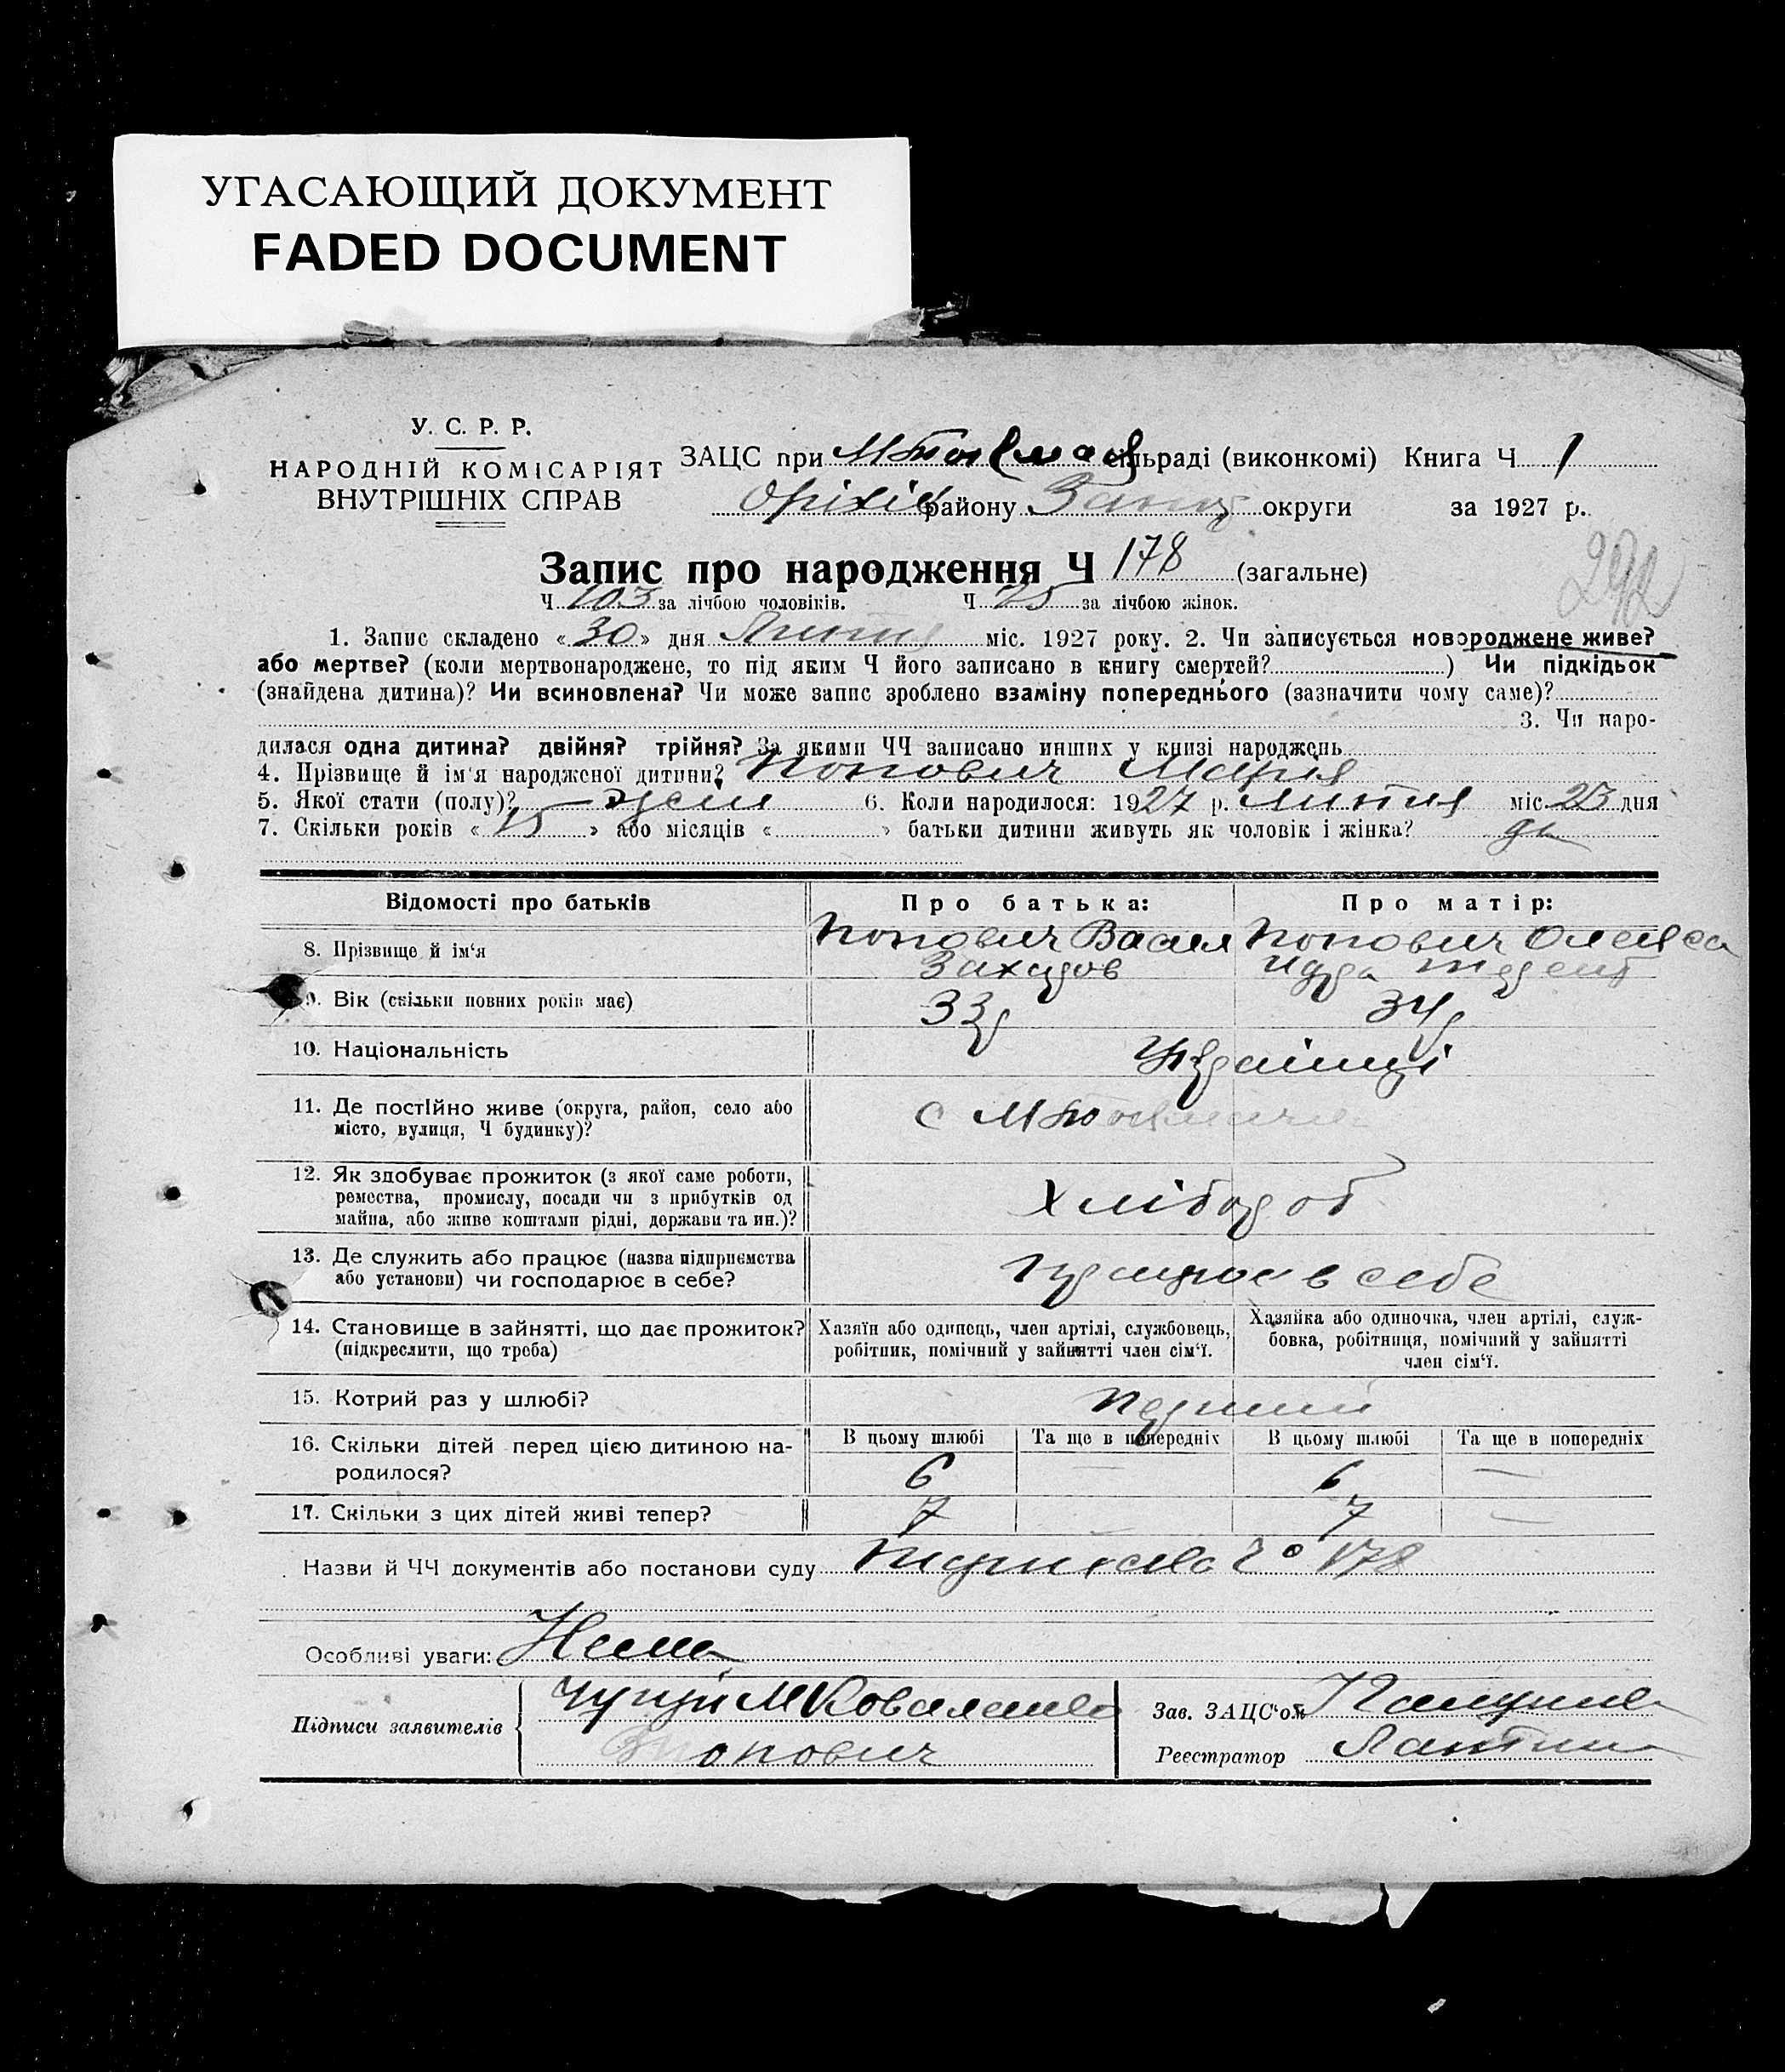 УГАСАЮЩИЙ ДОКУМЕНТ
FADED DOCUMENT
У. С. Р. Р.
НАРОДНІЙ КОМІСАРІЯТ
ВНУТРІШНІХ СПРАВ
ЗАЦС при сільраді (виконкомі) Книга Ч 1
Оріхів району округи за 1927 р.
292
Запис про народження Ч 178 (загальне)
Ч 103 за лічбою чоловіків. Ч 75 за лічбою жінок.
1. Запис складено «30» дня Липня міс. 1927 року. 2. Чи записується новороджене живе?
або мертве? (коли мертвонароджене, то під яким Ч його записано в книгу смертей? ) Чи підкідьок
(знайдена дитина)? Чи всиновлена? Чи може запис зроблено взаміну попереднього (зазначити чому саме)?
3. Чи наро-
дилася одна дитина? двійня? трійня? За якими ЧЧ записано инших у книзі народжень
4. Прізвище й ім'я народженої дитини? Попович Марія
5. Якої стати (полу)? — жен 6. Коли народилося: 1927 р. Липня міс. 23 дня
7. Скільки років «15» або місяців « » батьки дитини живуть як чоловік і жінка? да
Відомості про батьків Про батька: Про матір:
8. Прізвище й ім'я Попович Васил Попович Олекса
Захаров
9. Вік (скільки повних років має) 33 р 34 р
10. Національність Українці
11. Де постійно живе (округа, район, село або
місто, вулиця, Ч будинку)? с
12. Як здобуває прожиток (з якої саме роботи,
ремества, промислу, посади чи з прибутків од
майна, або живе коштами рідні, держави та ин.)? Хлібороб
13. Де служить або працює (назва підприємства
або установи) чи господарює в себе? в себе
14. Становище в зайнятті, що дає прожиток?
(підкреслити, що треба)
Хазяїн або одинець, член артілі, службовець,
робітник, помічний у зайнятті член сім'ї.
Хазяйка або одиночка, член артілі, служ-
бовка, робітниця, помічний у зайнятті
член сім'ї.
15. Котрий раз у шлюбі? Перший
16. Скільки дітей перед цією дитиною на-
родилося?
В цьому шлюбі Та ще в попередніх В цьому шлюбі Та ще в попередніх
6 — 6 —
17. Скільки з цих дітей живі тепер? 7 — 7 —
Назви й ЧЧ документів або постанови суду 178
Особливі уваги: Нема
Підписи заявителів
Попович
Зав. ЗАЦС'ом
Реєстратор